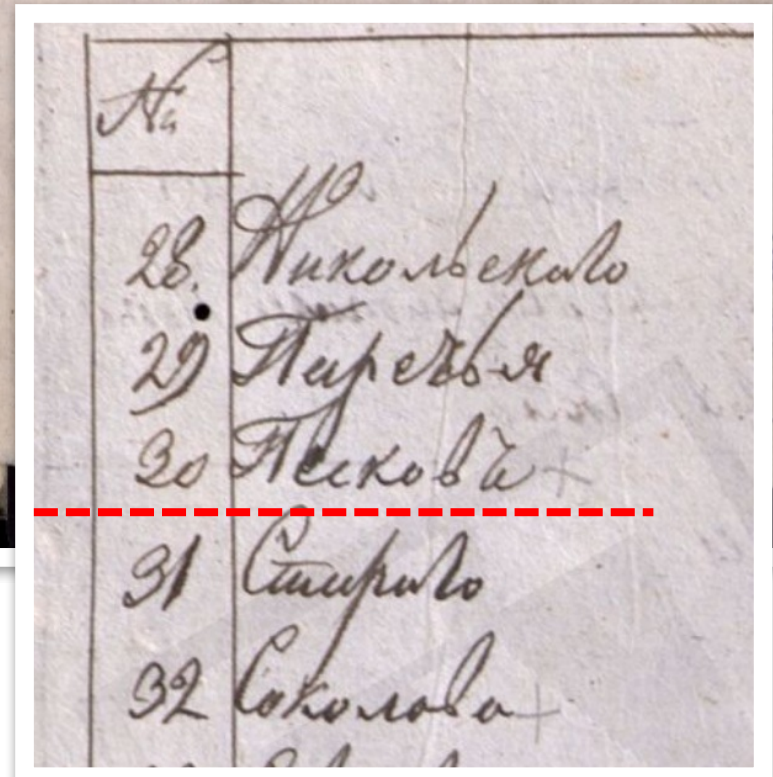 №
28. Никольскаго
29 Паречья
30 Пескова
31 Стараго
32 Соколова